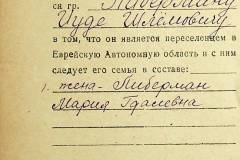 ся гр. Либерману
Иуде Шлёмовичу
в том, что он является переселенцем в
Еврейскую Автономную область и с ним
следует его семья в составе:
1. жена - Либерман
Мария Гдалевна